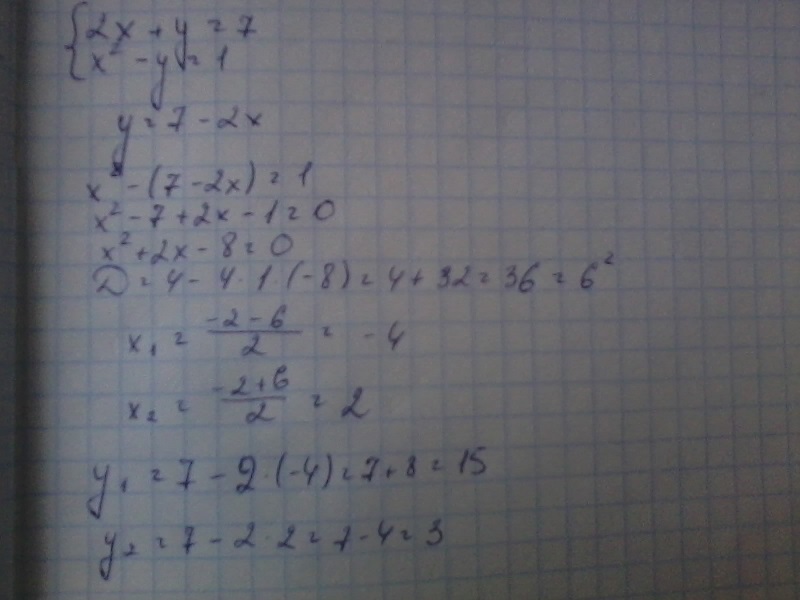 {2x + y = 7
x² - y = 1
y = 7 - 2x
x² - (7 - 2x) = 1
x² - 7 + 2x - 1 = 0
x² + 2x - 8 = 0
D = 4 - 4 · 1 · (-8) = 4 + 32 = 36 = 6²
x₁ = (-2 - 6)/2 = -4
x₂ = (-2 + 6)/2 = 2
y₁ = 7 - 2 · (-4) = 7 + 8 = 15
y₂ = 7 - 2 · 2 = 7 - 4 = 3